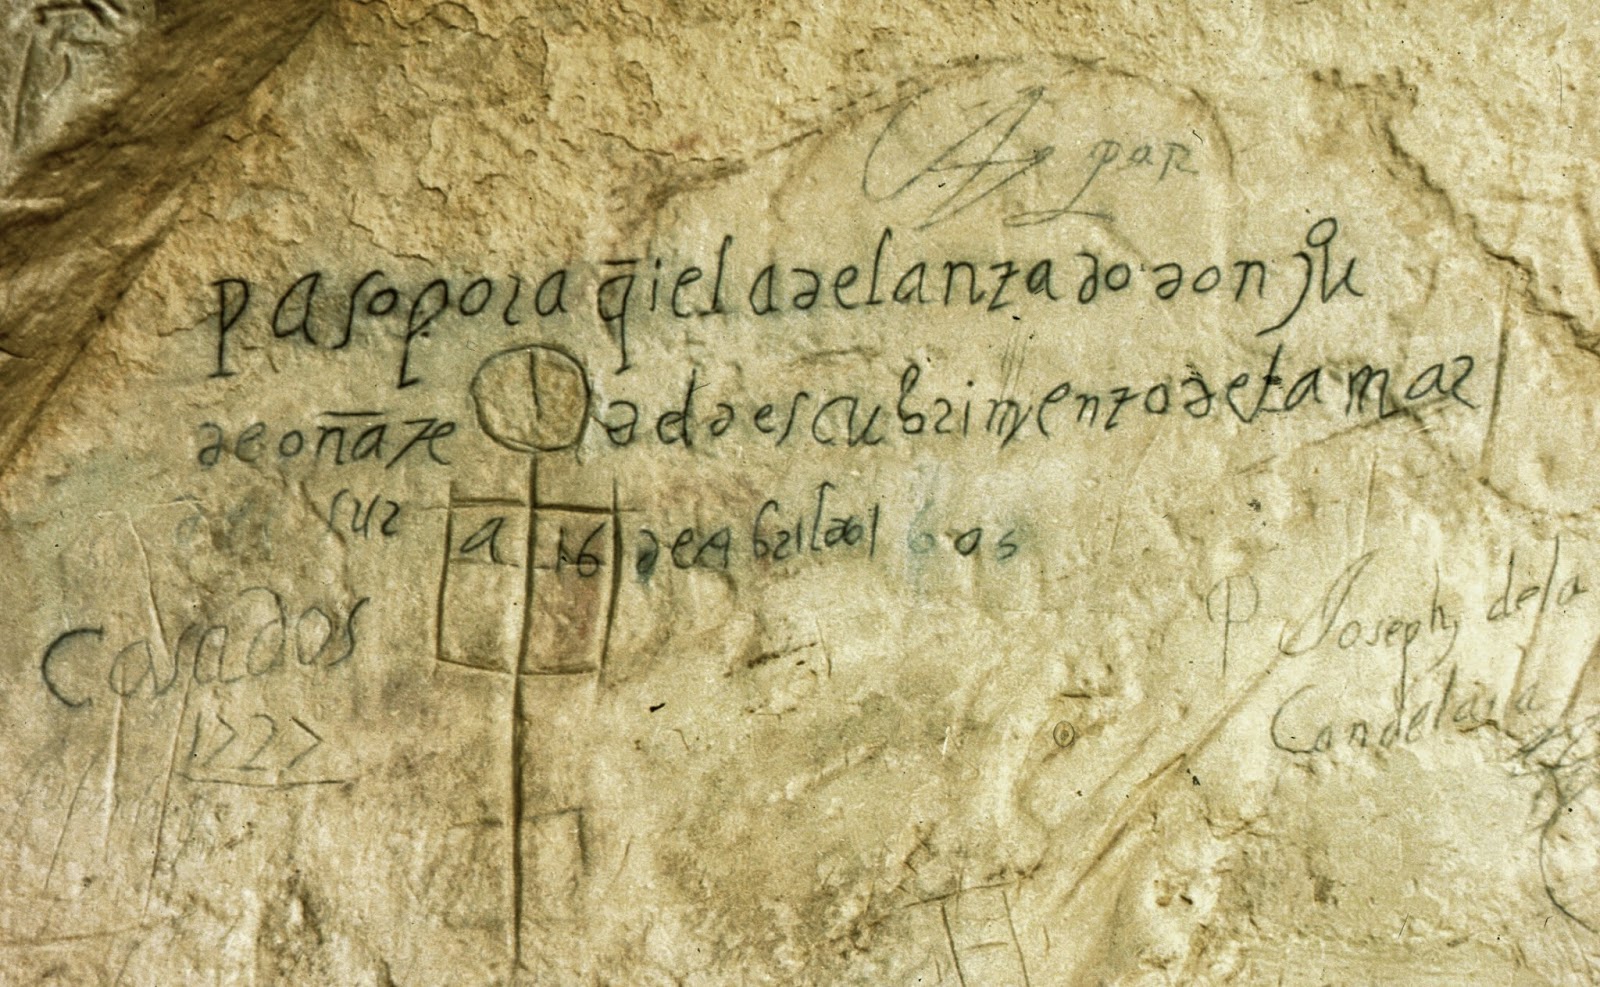 Agpar
pasopora q̄iel adelanzado don ju
de oñaze del descubrimenzo de la mar
del sur a 16 de abril del 605
Casados
1727
P Joseph de la
Candelaria